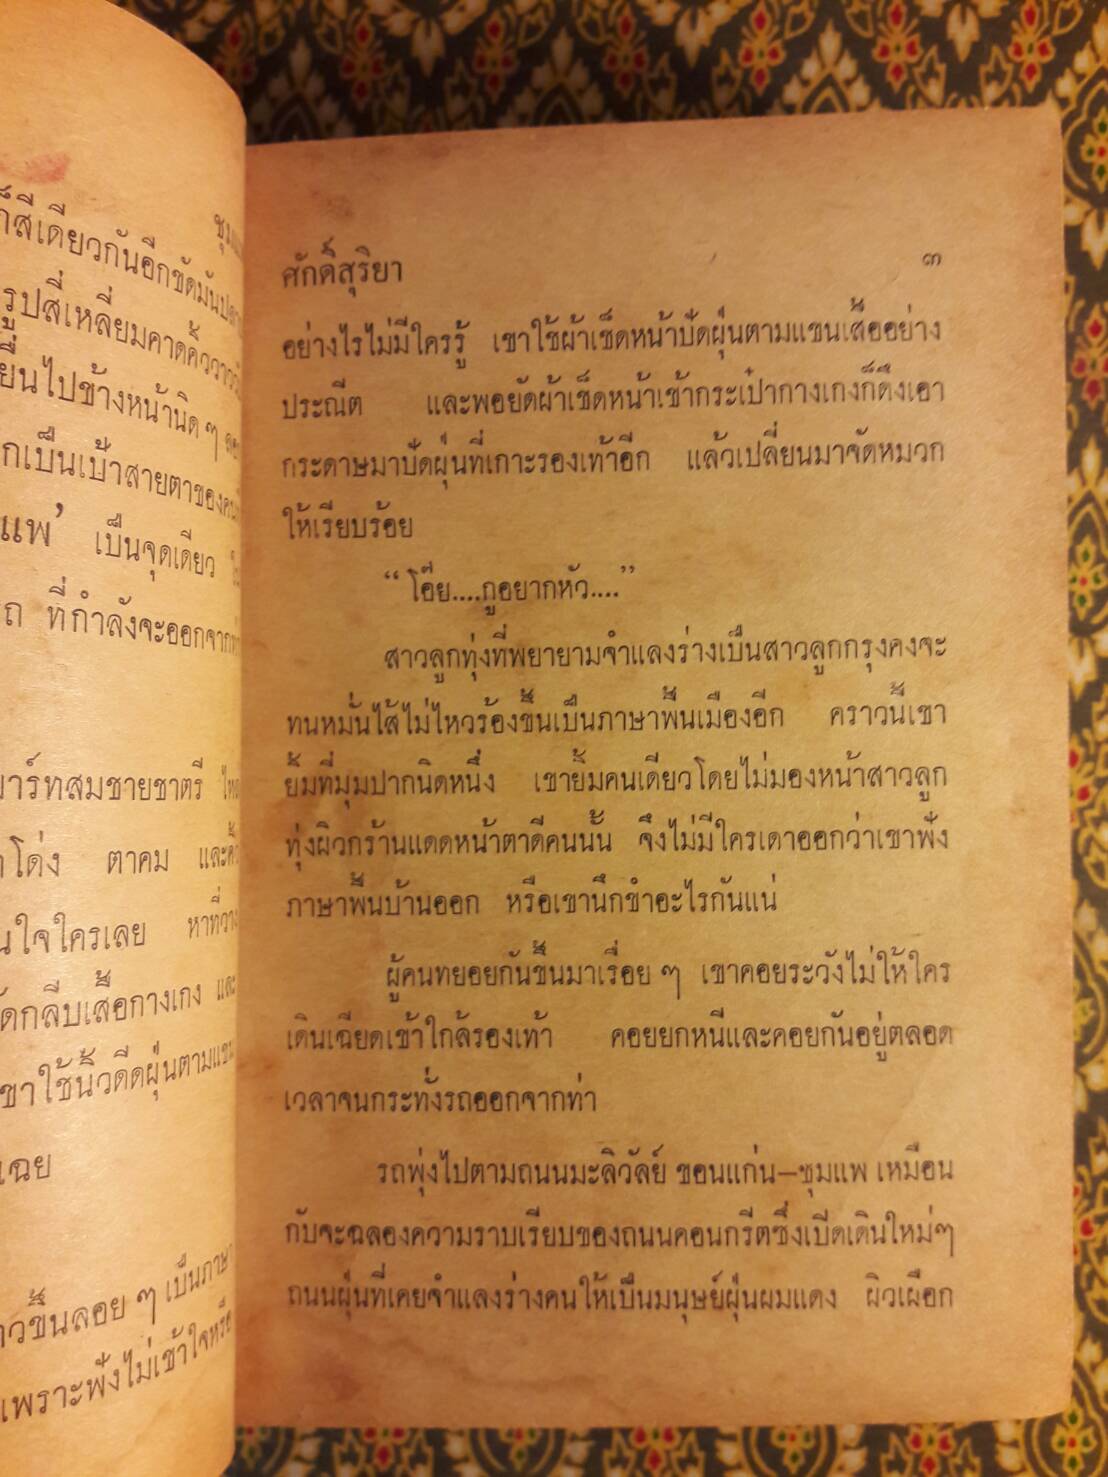 ก็สีเดียวกันอีกขัดมัน
รูปสี่เหลี่ยมคาดคิ้ว
ยื่นไปข้างหน้านิด ๆ
เป็นเป้าสายตาของ
แพ’ เป็นจุดเดียว
ที่กำลังจะออกจาก
สมชายชาตรี
โด่ง ตาคม และคิ้ว
ใจใครเลย หาที่วาง
กลีบเสื้อกางเกง และ
เขาใช้นิ้วดีดฝุ่นตามแขน
เฉย
ขึ้นลอย ๆ เป็นภาษา
เพราะฟังไม่เข้าใจหรือ
ศักดิ์สุริยา ๓
อย่างไรไม่มีใครรู้ เขาใช้ผ้าเช็ดหน้าปัดฝุ่นตามแขนเสื้ออย่าง
ประณีต และพอยัดผ้าเช็ดหน้าเข้ากระเป๋ากางเกงก็ดึงเอา
กระดาษมาปัดฝุ่นที่เกาะรองเท้าอีก แล้วเปลี่ยนมาจัดหมวก
ให้เรียบร้อย
“ โอ๊ย....กูอยากหัว....”
สาวลูกทุ่งที่พยายามจำแลงร่างเป็นสาวลูกกรุงคงจะ
ทนหมั่นไส้ไม่ไหวร้องขึ้นเป็นภาษาพื้นเมืองอีก คราวนี้เขา
ยิ้มที่มุมปากนิดหนึ่ง เขายิ้มคนเดียวโดยไม่มองหน้าสาวลูก
ทุ่งผิวกร้านแดดหน้าตาดีคนนั้น จึงไม่มีใครเดาออกว่าเขาฟัง
ภาษาพื้นบ้านออก หรือเขานึกขำอะไรกันแน่
ผู้คนทยอยกันขึ้นมาเรื่อย ๆ เขาคอยระวังไม่ให้ใคร
เดินเฉียดเข้าใกล้รองเท้า คอยยกหนีและคอยกันอยู่ตลอด
เวลาจนกระทั่งรถออกจากท่า
รถพุ่งไปตามถนนมะลิวัลย์ ขอนแก่น–ชุมแพ เหมือน
กับจะฉลองความราบเรียบของถนนคอนกรีตซึ่งเปิดเดินใหม่ๆ
ถนนฝุ่นที่เคยจำแลงร่างคนให้เป็นมนุษย์ฝุ่นผมแดง ผิวเผือก